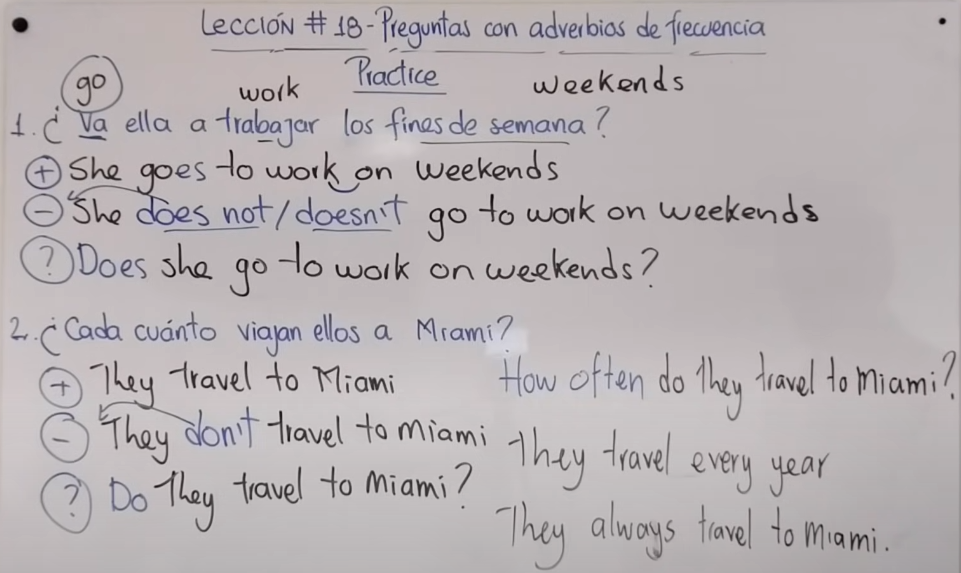 Lección # 18-Preguntas con adverbios de frecuencia
Practice
go work weekends
1. ¿Va ella a trabajar los fines de semana?
+ She goes to work on weekends
- She does not/doesn't go to work on weekends
? Does she go to work on weekends?
2. ¿Cada cuánto viajan ellos a Miami?
+ They travel to Miami
- They don't travel to Miami
? Do they travel to Miami?
How often do they travel to Miami?
They travel every year
They always travel to Miami.